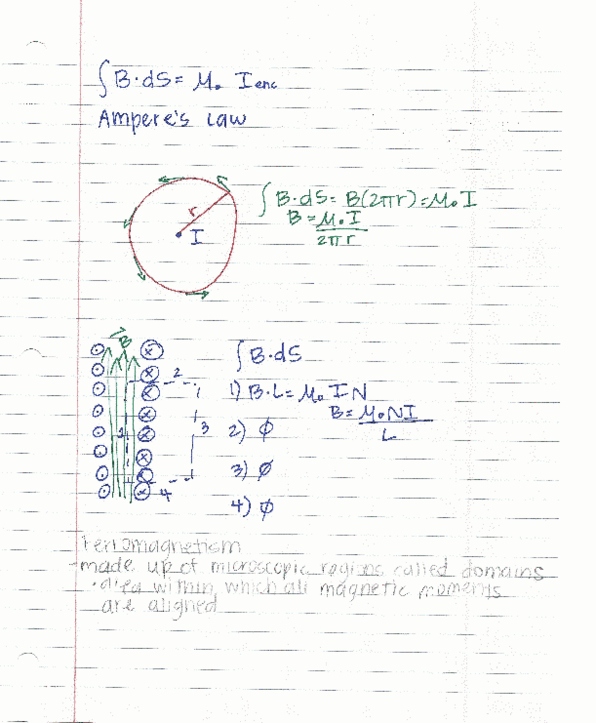 ∫B·dS = μ₀ Ienc
Ampere's Law
r
I
∫B·dS = B(2πr) = μ₀I
B = μ₀I
2πr
B
1
2
3
4
∫B·dS
1) B·L = μ₀ IN
B = μ₀NI
L
2) φ
3) φ
4) φ
Ferromagnetism
-made up of microscopic regions called domains
·area within which all magnetic moments
are aligned